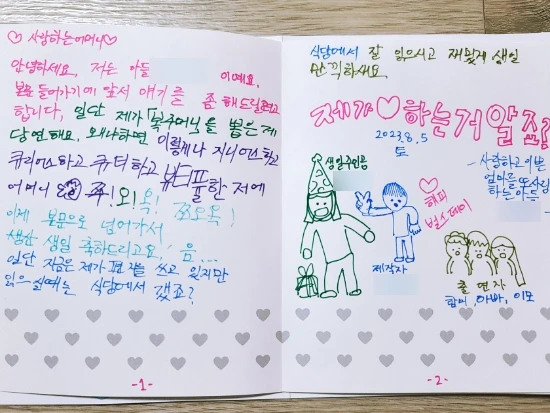 ♡ 사랑하는어머니♡
안녕하세요, 저는 아들 이예요,
본문 들어가기에 앞서 얘기를 좀 해드릴려고
합니다, 일단 제가 「복주머니」를 뽑은 게
당연해요. 왜냐하면 이렇게나 지니어스하고
큐리어스하고 큐티하고 뷰티풀한 저에
어머니 쪽!
이제 본문으로 넘어가서
생신 생일 축하드리고요, 음...
일단 지금은 제가 편지를 쓰고 있지만
읽으실때는 식당에서 겠죠?
-1-
식당에서 잘 읽으시고 재밌게 생일
만끽하세요.
제가♡하는거알죠?
2023.8.5
토
- 사랑하고 이쁜
엄마를 또 사랑
하는 아들
생일주인공
♡해피
벌스데이
제작자
출연자
할머니, 아빠, 이모
-2-